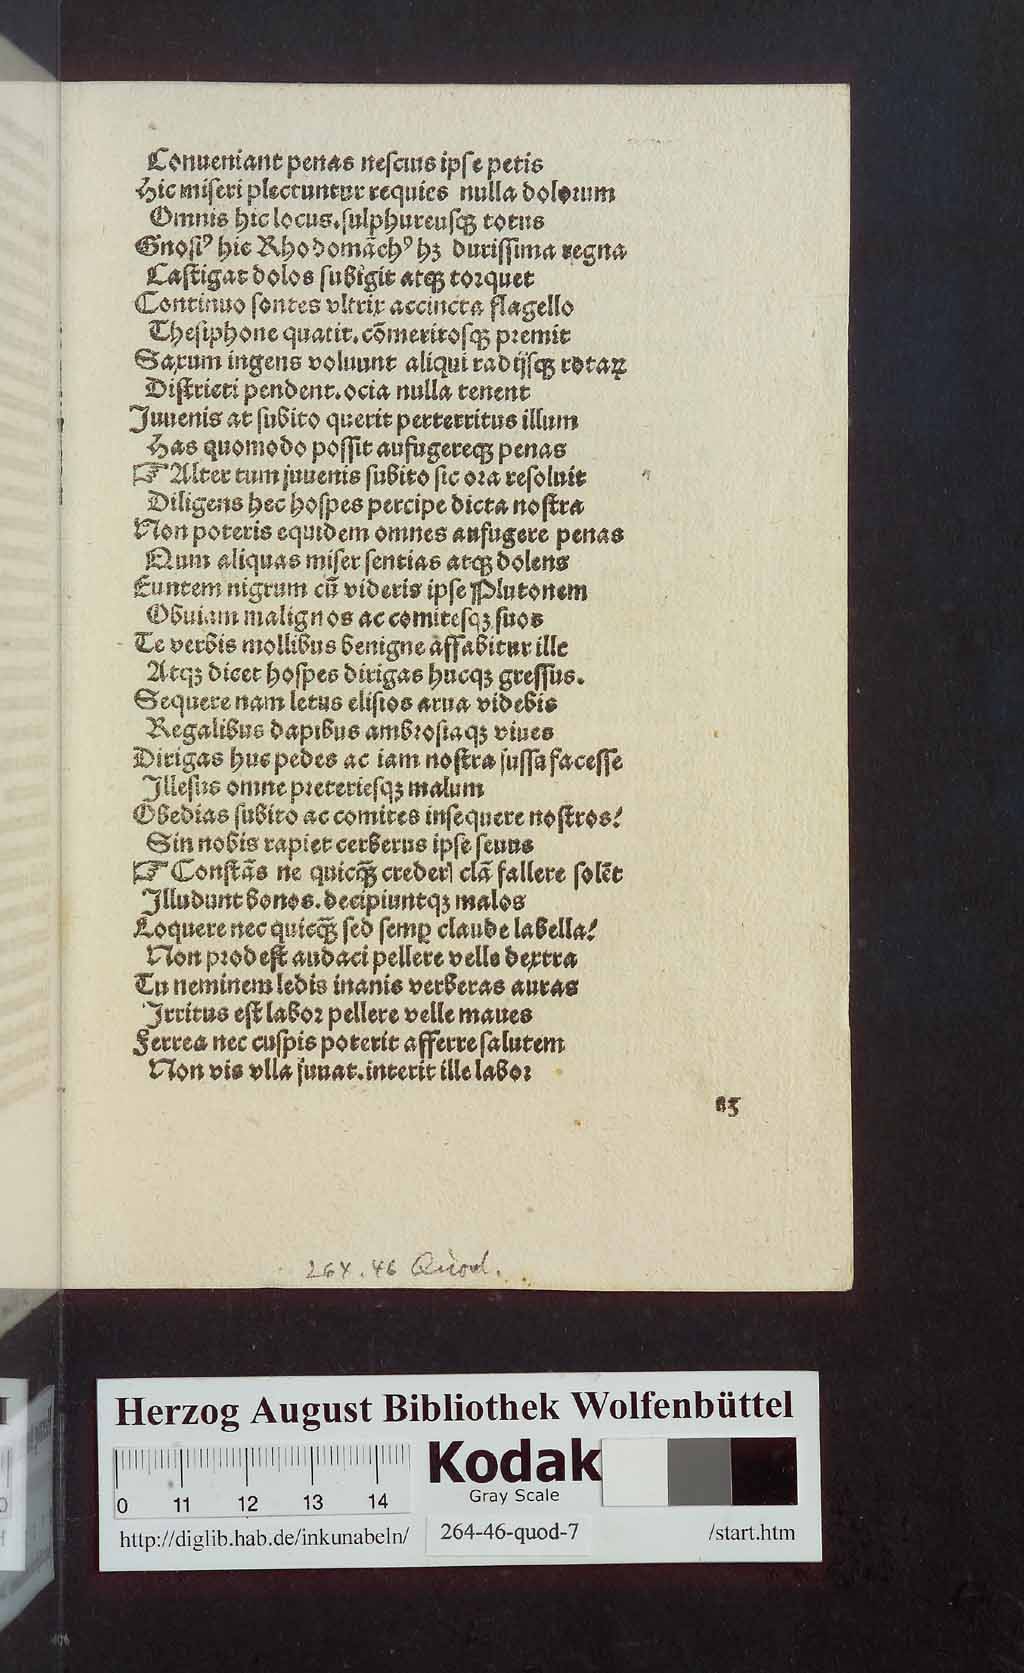 Conueniant penas nescius ipse petis
Hic miseri plectuntur requies nulla dolorum
Omnis hic locus. sulphureusqꝫ totus
Gnosiꝰ hic Rhodomãchꝰ hꝫ durissima regna
Castigat dolos subigit atqꝫ torquet
Continuo sontes vltrix accincta flagello
Thesiphone quatit. cõmeritosqꝫ premit
Saxum ingens voluunt aliqui radijsqꝫ rotaꝝ
Districti pendent. ocia nulla tenent
Juuenis at subito querit perterritus illum
Has quomodo possit aufugereqꝫ penas
☞ Alter tum juuenis subito sic ora resoluit
Diligens hec hospes percipe dicta nostra
Non poteris equidem omnes aufugere penas
Qum aliquas miser sentias atqꝫ dolens
Euntem nigrum cũ videris ipse Plutonem
Obuiam malignos ac comitesqꝫ suos
Te verbis mollibus benigne affabitur ille
Atqꝫ dicet hospes dirigas hucqꝫ gressus.
Sequere nam letus elisios arua videbis
Regalibus dapibus ambrosiaqꝫ viues
Dirigas huc pedes ac iam nostra jussa facesse
Jllesus omne preteriesqꝫ malum
Obedias subito ac comites insequere nostros!
Sin nobis rapiet cerberus ipse seuus
☞ Constãs ne quicꝗ̃ crederꝭ clã fallere solẽt
Jlludunt bonos. decipiuntqꝫ malos
Loquere nec quicꝗ̃ sed semꝑ claude labella!
Non prodest audaci pellere velle dextra
Tu neminem ledis inanis verberas auras
Jrritus est labor pellere velle maues
Ferrea nec cuspis poterit afferre salutem
Non vis vlla juuat. interit ille labor
264.46 Quod.
Herzog August Bibliothek Wolfenbüttel
0 11 12 13 14
Kodak
Gray Scale
http://diglib.hab.de/inkunabeln/ 264-46-quod-7 /start.htm